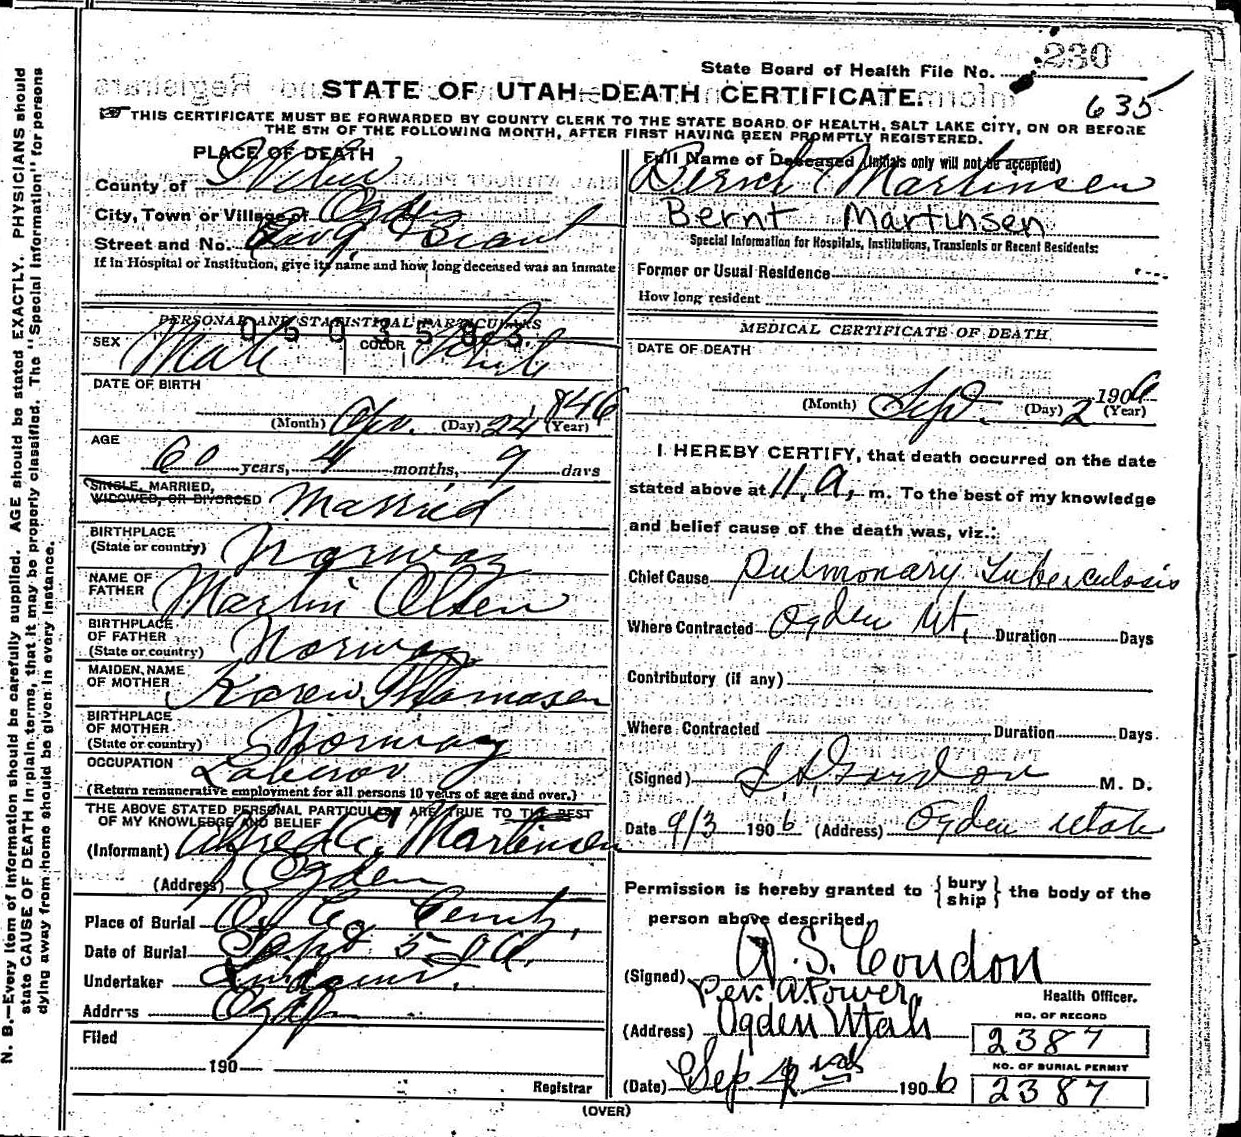 State Board of Health File No. 230
635
STATE OF UTAH—DEATH CERTIFICATE
THIS CERTIFICATE MUST BE FORWARDED BY COUNTY CLERK TO THE STATE BOARD OF HEALTH, SALT LAKE CITY, ON OR BEFORE
THE 5TH OF THE FOLLOWING MONTH, AFTER FIRST HAVING BEEN PROMPTLY REGISTERED.
PLACE OF DEATH
County of Weber
City, Town or Village of Ogden
Street and No.
If in Hospital or Institution, give its name and how long deceased was an inmate
PERSONAL AND STATISTICAL PARTICULARS
SEX Male COLOR White
DATE OF BIRTH
(Month) Apr. (Day) 24 (Year) 1846
AGE
60 years, 4 months, 9 days
SINGLE, MARRIED,
WIDOWED, OR DIVORCED Married
BIRTHPLACE
(State or country) Norway
NAME OF
FATHER Martin Olsen
BIRTHPLACE
OF FATHER
(State or country) Norway
MAIDEN NAME
OF MOTHER Karen Thomasen
BIRTHPLACE
OF MOTHER
(State or country) Norway
OCCUPATION Laborer
(Return remunerative employment for all persons 10 years of age and over.)
THE ABOVE STATED PERSONAL PARTICULARS ARE TRUE TO THE BEST
OF MY KNOWLEDGE AND BELIEF
(Informant) Alfred C. Martinsen
(Address) Ogden
Place of Burial
Date of Burial Sept 5-06.
Undertaker
Address
Filed
190
Registrar
Full Name of Deceased (Initials only will not be accepted)
Bernt Martinsen
Bernt Martinsen
Special Information for Hospitals, Institutions, Transients or Recent Residents:
Former or Usual Residence
How long resident
MEDICAL CERTIFICATE OF DEATH
DATE OF DEATH
(Month) Sept. (Day) 2 1906 (Year)
I HEREBY CERTIFY, that death occurred on the date
stated above at 11, a, m. To the best of my knowledge
and belief cause of the death was, viz.:
Chief Cause Pulmonary Tuberculosis
Where Contracted Ogden Ut, Duration Days
Contributory (if any)
Where Contracted Duration Days
(Signed) Gordon M. D.
Date 9/3 1906 (Address) Ogden Utah
Permission is hereby granted to { bury ship } the body of the
person above described.
(Signed) A. S. Condon
Per. A. Power, Health Officer.
(Address) Ogden Utah
NO. OF RECORD
2387
NO. OF BURIAL PERMIT
2387
(Date) Sep. 1906
(OVER)
N. B.—Every item of information should be carefully supplied. AGE should be stated EXACTLY. PHYSICIANS should
state CAUSE OF DEATH in plain terms, that it may be properly classified. The "Special Information" for persons
dying away from home should be given in every instance.